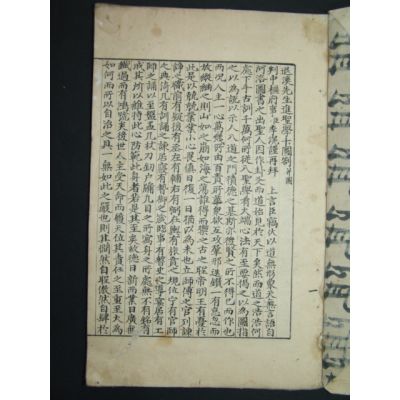 退溪先生進聖學十圖劄 并圖
判中樞府事臣李滉謹再拜 上言臣竊伏以道無形象天無言語自
河洛圖書之出聖人因作卦爻而道始見於天下矣然而道之浩浩何
處下手古訓千萬何所從入聖學有大端心法有至要揭之以爲圖指
之以爲說以示人入道之門積德之基斯亦後賢之所不得已而作也
而況人主一心萬幾所由百責所萃衆欲互攻羣邪迭鑽一有怠忽而
放縱繼之則如山之崩如海之蕩誰得而禦之古之聖帝明王有憂於
此是以兢兢業業小心畏愼日復一日猶以爲未也立師傅之官列諫
諍之職前有疑後有丞左有輔右有弼在輿有旅賁之規位宁有官師
之典倚几有訓誦之諫居寢有暬御之箴臨事有瞽史之導宴居有工
師之誦以至盤盂几杖刀劍戶牖凡目之所寓身之所處無不有銘有
戒其所以維持此心防範此身者若是其至矣故德日新而業日廣無
纖過而有鴻號矣後世人主受天命而履天位其責任之至重至大爲
如何而所以自治之具一無如此之嚴也則其憪然自聖傲然自肆於